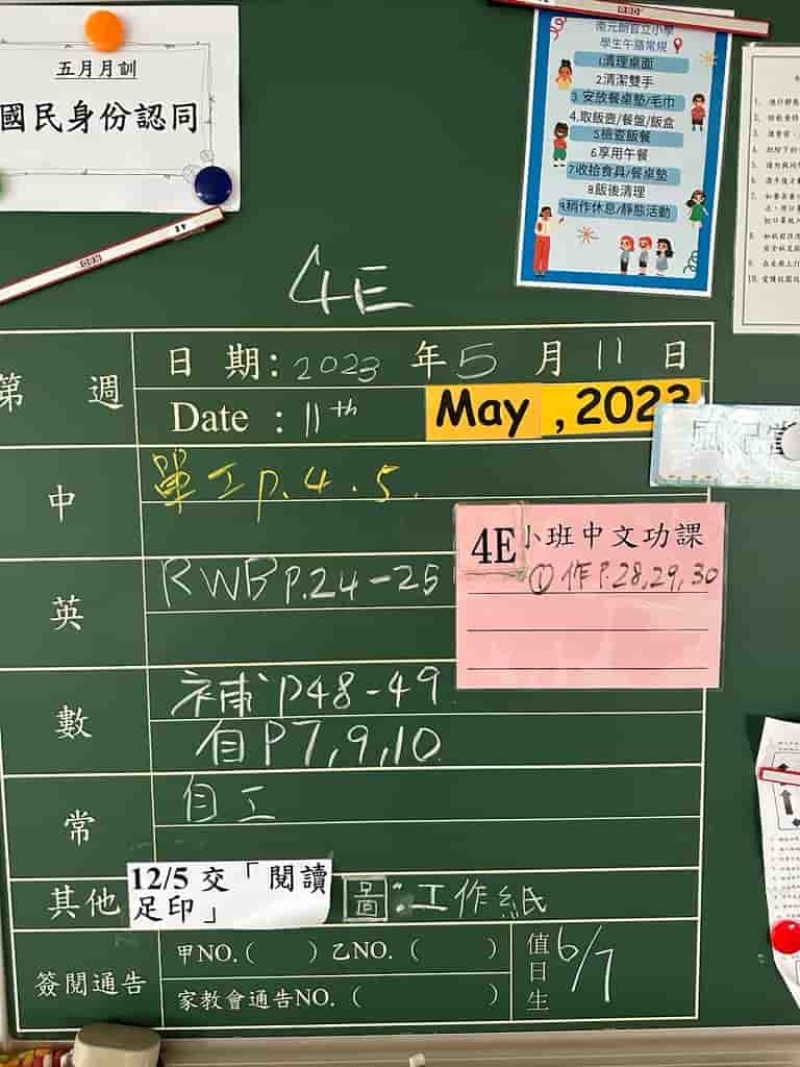 五月月訓
國民身份認同
南元朗官立小學
學生午膳常規
1清理桌面
2清潔雙手
3 安放餐桌墊/毛巾
4.取飯壺/餐盤/飯盒
5檢查飯餐
6享用午餐
7收拾食具/餐桌墊
8飯後清理
9稍作休息/靜態活動
4E
第 週
日 期: 2023 年 5 月 11 日
Date : 11th May , 2023
中
單工 p. 4 . 5 .
4E 小班中文功課
①作 P.28,29,30
英
RWB P.24-25
數
補 P48-49
自 P7,9,10
常
自工
其他
12/5 交「閱讀
足印」
圖:工作紙
簽閱通告
甲NO.( ) 乙NO. ( )
家教會通告NO. ( )
值日生 6/7